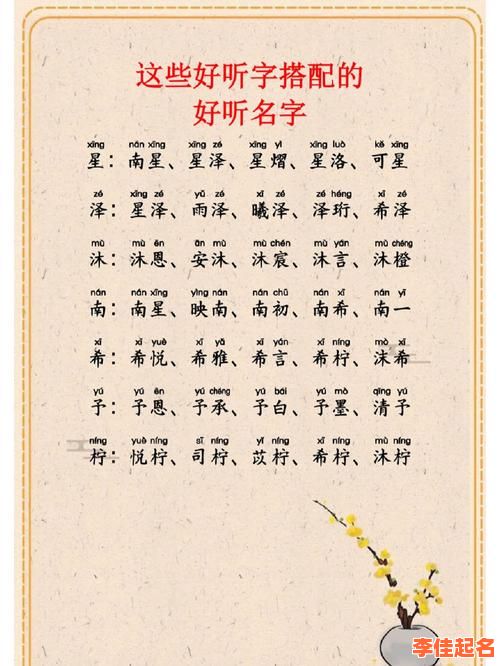 这些好听字搭配的
好听名字
xīng nán xīng xīng zé xīng yì xīng luò kě xīng
星：南星、星泽、星熠、星洛、可星
zé xīng zé yǔ zé xī zé zé héng xī zé
泽：星泽、雨泽、曦泽、泽珩、希泽
mù mù ēn ān mù mù chén mù yán mù chéng
沐：沐恩、安沐、沐宸、沐言、沐橙
nán nán xīng yìng nán nán chū nán xī nán yī
南：南星、映南、南初、南希、南一
xī xī yuè xī yǎ xī yán xī níng mò xī
希：希悦、希雅、希言、希柠、沫希
yú yú ēn yú chéng yú bái yú mò qīng yú
予：予恩、予承、予白、予墨、清予
níng yuè níng sī níng yǐ níng xī níng mù níng
柠：悦柠、司柠、苡柠、希柠、沐柠
李佳起名